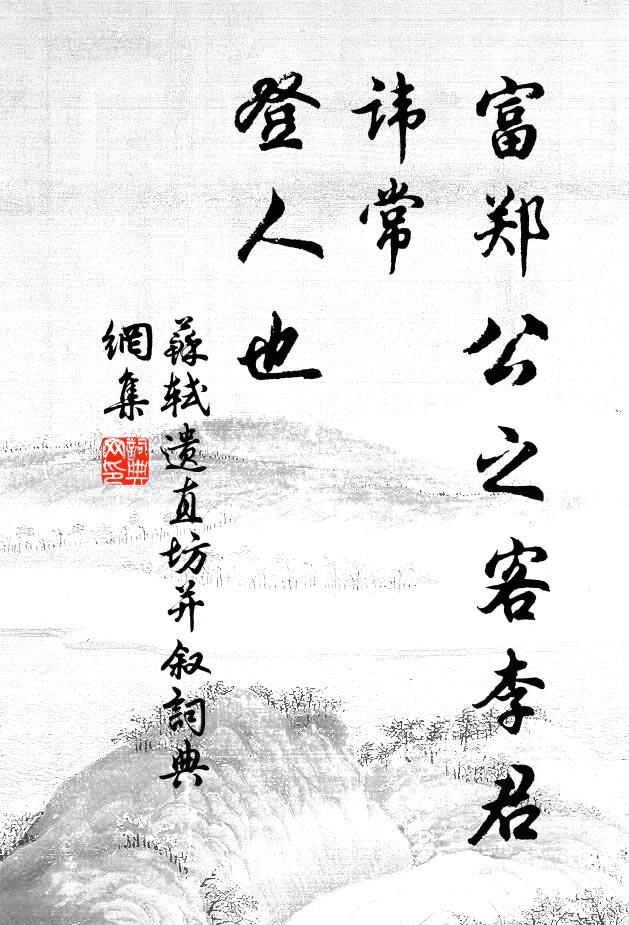 富郑公之客李君
讳常
登人也
蘇軾遗直坊并叙詞典
網集
詞典
网印